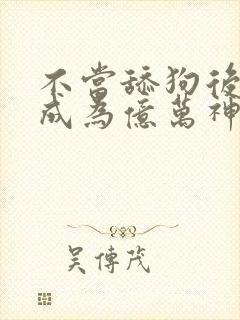 不當舔狗後
成為億萬神
吳傳茂